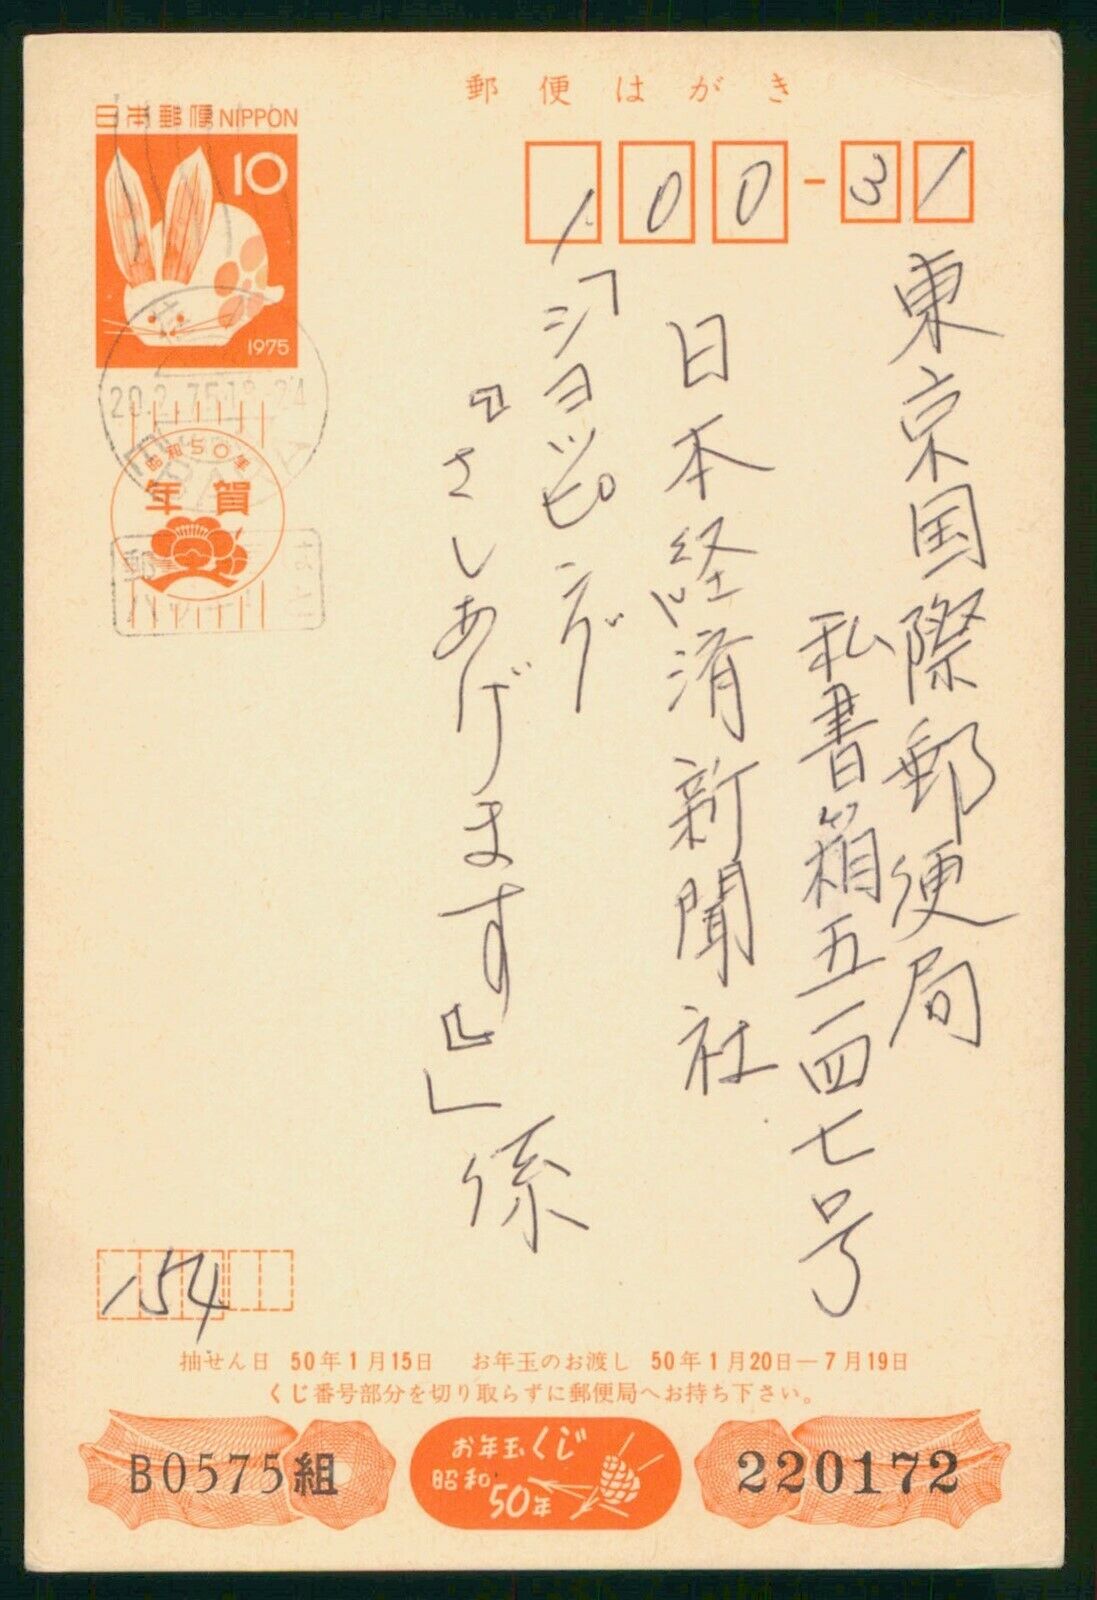 郵便はがき
日本郵便 NIPPON
10
1975
100-31
東京国際郵便局
私書箱五一四七号
日本経済新聞社
「ショッピング
『さしあげます』」係
20.2.75 18-24
昭和50年
年賀
154
抽せん日 50年1月15日 お年玉のお渡し 50年1月20日—7月19日
くじ番号部分を切り取らずに郵便局へお持ち下さい。
B0575組
お年玉くじ
昭和
50年
220172